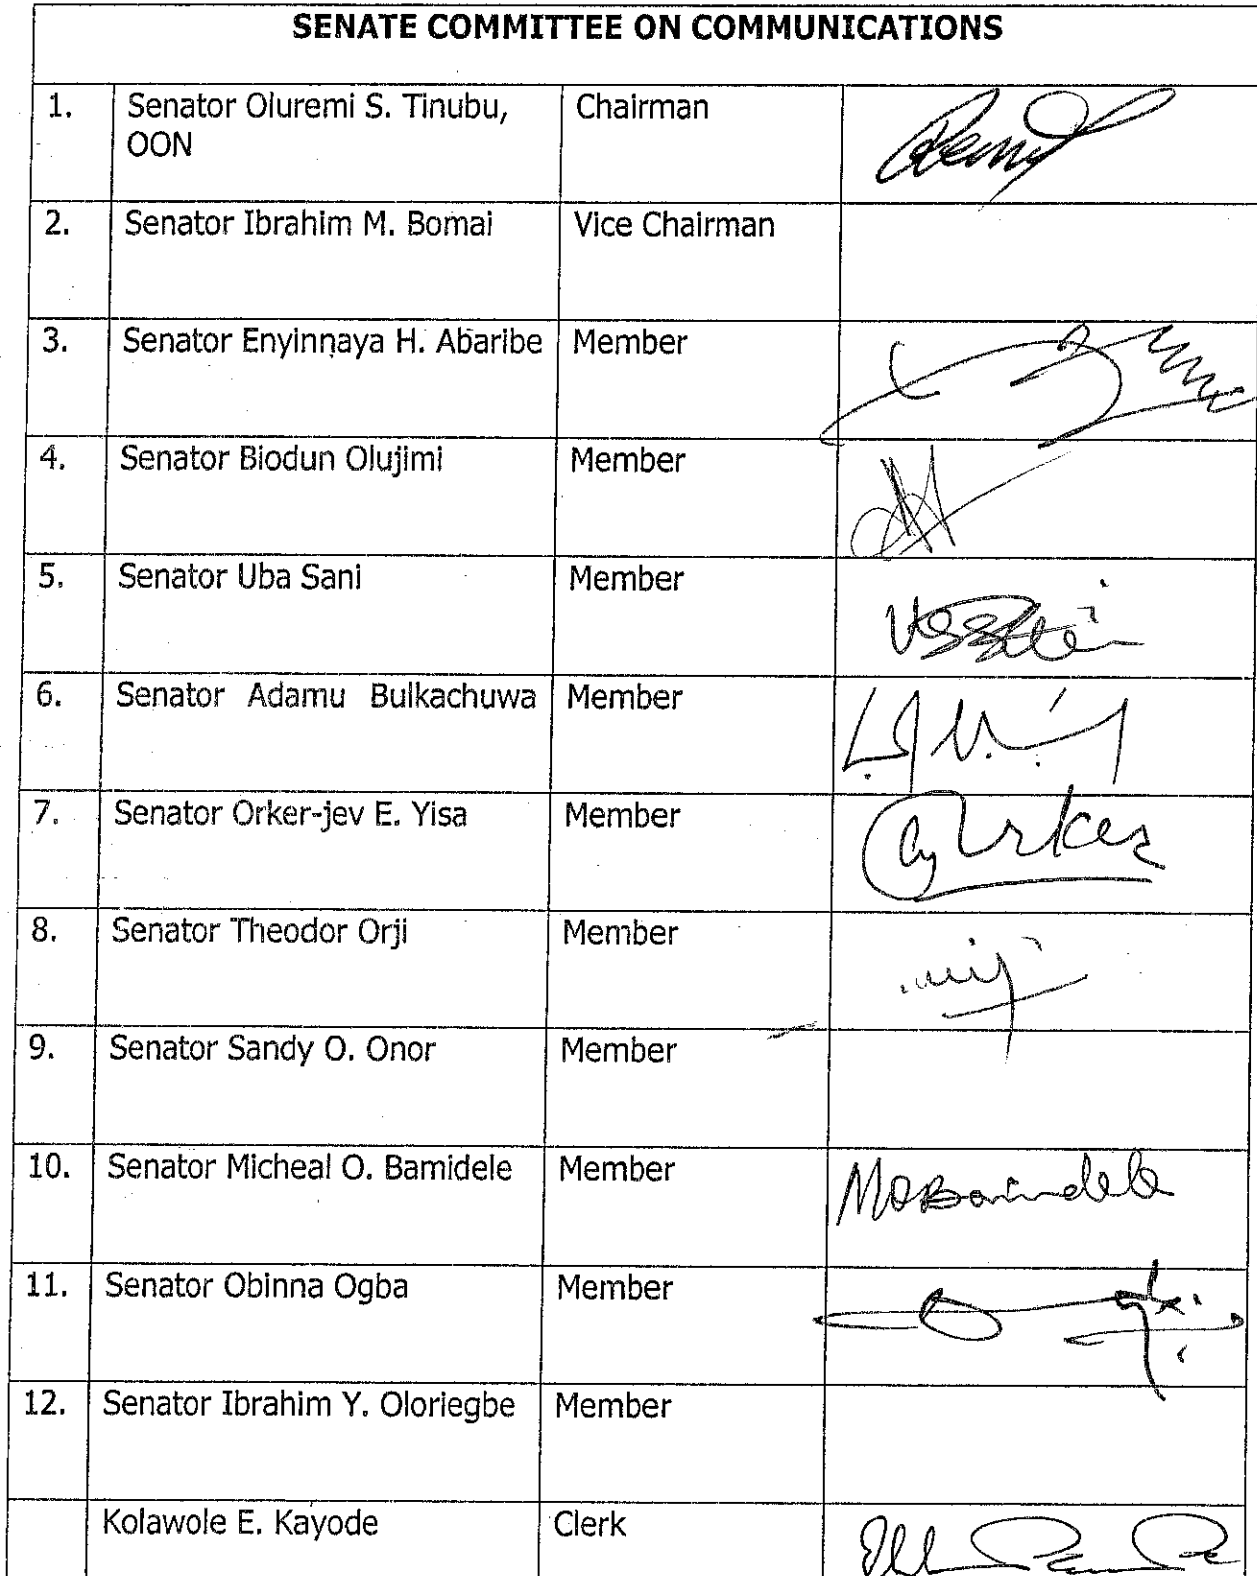 SENATE COMMITTEE ON COMMUNICATIONS
1. Senator Oluremi S. Tinubu, Chairman
OON
2. Senator Ibrahim M. Bomai Vice Chairman
3. Senator Enyinnaya H. Abaribe Member
4. Senator Biodun Olujimi Member
5. Senator Uba Sani Member
6. Senator Adamu Bulkachuwa Member
7. Senator Orker-jev E. Yisa Member
8. Senator Theodor Orji Member
9. Senator Sandy O. Onor Member
10. Senator Micheal O. Bamidele Member MOBamidele
11. Senator Obinna Ogba Member
12. Senator Ibrahim Y. Oloriegbe Member
Kolawole E. Kayode Clerk